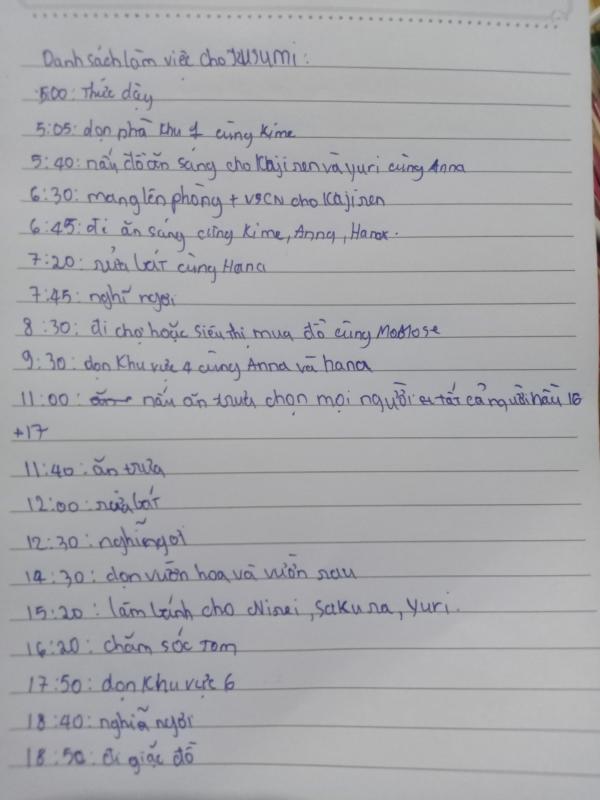 Danh sách làm việc cho KUSUMI:
5:00: Thức dậy
5:05: dọn phà khu 1 cùng Kime
5:40: nấu đồ ăn sáng cho Kajiren và yuri cùng Anna
6:30: mang lên phòng + VSCN cho Kajiren
6:45: đi ăn sáng cùng Kime, Anna, Hana.
7:20: rửa bát cùng Hana
7:45: nghĩ ngơi
8:30: đi chợ hoặc siêu thị mua đồ cùng MoMose
9:30: dọn khu vực 4 cùng Anna và hana
11:00: nấu ăn trưa chọn mọi người tất cả người hầu 16
+17
11:40: ăn trưa
12:00: rửa bát
12:30: nghĩ ngơi
14:30: dọn vườn hoa và vườn rau
15:20: làm bánh cho Nirei, Sakura, Yuri.
16:20: chăm sóc Tom
17:50: dọn khu vực 6
18:40: nghĩa ngơi
18:50: đi giặc đồ